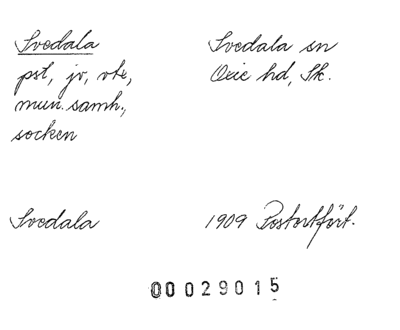 Svedala
pst, jv, vte,
mun. samh.,
socken
Svedala sn
Oxie hd, Sk.
Svedala
1909 Postortfört.
00029015